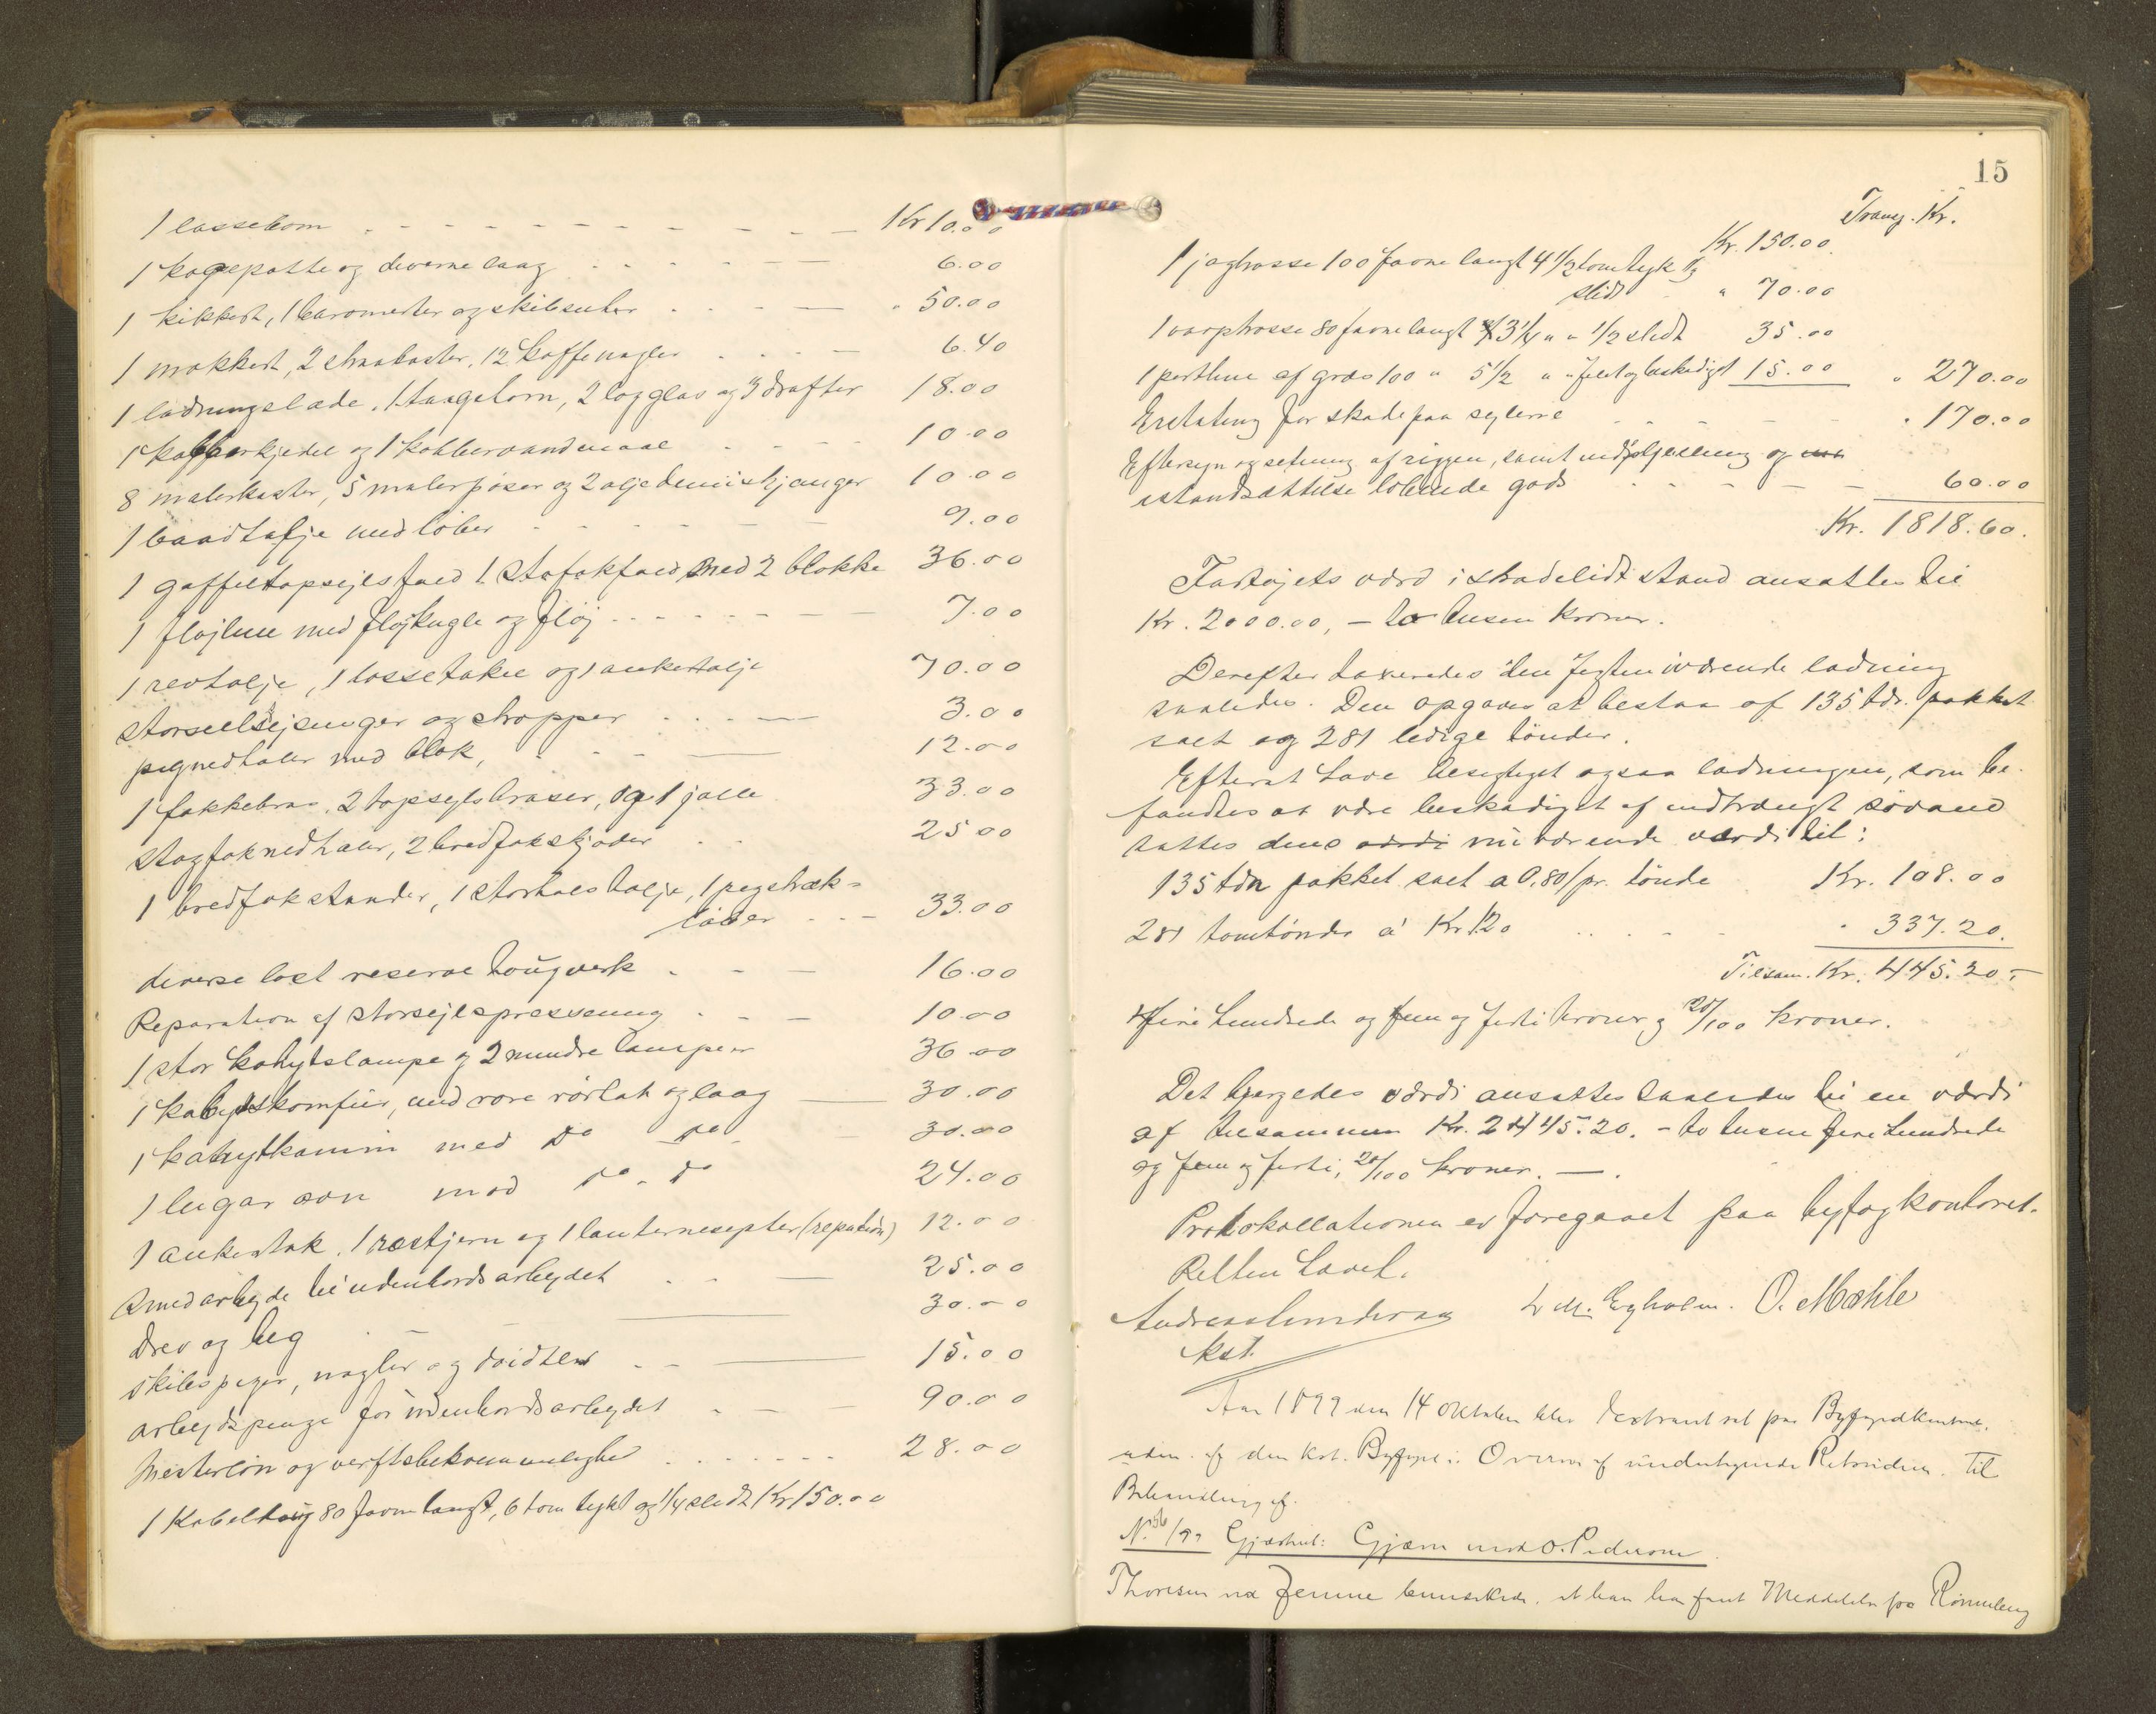 1 lossebom - - - - - - Kr 10.00
1 kogepotte og diverse laag - - - 6.00
1 kikkert, 1 barometer og skibsuhr - - " 50.00
1 mokkert, 2 straakoster, 12 koffenagler - - - 6.40
1 ladningslæde, 1 taagehorn, 2 logglas og 3 drafter 18.00
1 kaffekjedel og 1 kobbervandmaal - - - 10.00
8 malerkoster, 5 malerpøser og 2 oljedunkskjanger 10.00
1 baadtalje med løber - - - 9.00
1 gaffeltopsejlsfald 1 stagfokfald med 2 blokke 36.00
1 fløjline med fløjkugle og fløj - - - 7.00
1 revtalje, 1 lossetakel og 1 ankertalje 70.00
storseilsejsinger og stropper - - - 3.00
pignedhaler med blok, - - 12.00
1 fokkebras, 2 topsejlsbraser, og 1 jolle 33.00
stagfoknedhaler, 2 bredfokskjøder - - 25.00
1 bredfokstander, 1 storhalstalje, 1 pigstræk=
løber - - - 33.00
diverse løst reserve tougverk - - - 16.00
Reparation af storsejlspressenning - - - 10.00
1 stor kahytslampe og 2 mindre lamper 36.00
1 kabyskomfur, med rør rørhat og laag 30.00
1 kahytkamin med do do 30.00
1 lugar ovn med do. do 24.00
1 ankerstok, 1 røstjern og 1 lanternesepter (reparation) 12.00
Smedarbejde til udenbordsarbejdet - - - 25.00
Drev og beg 30.00
skibspiger, nagler og 15.00
arbejdspenge for udenbordsarbejdet - - - 90.00
Mesterløn og verftsbekvemmeligheder - - - 28.00
1 Kabeltoug 80 favne langt, 6 tom tykt og 1/4 slidt Kr 150.00
15
Transp. Kr.
Kr. 150.00
1 jaghrosse 100 favne langt 4 1/2 tom tyk 1/3
slidt - " 70.00
1 varphrosse 80 favne langt 3 1/4 " " 1/2 slidt 35.00
1 pertline af græs 100 " 5 1/2 " " og beskadiget 15.00 " 270.00
Erstatning for skade paa sejlene - - - " 170.00
Eftersyn og setning af riggen, samt og
istandsættelse løbende gods - - - 60.00
Kr. 1818.60.
Fartøjets værd i skadelidt stand ansattes til
Kr. 2000.00, – to tusen kroner.
Derefter taxeredes den Jegten iværende ladning
saaledes. Den opgaves at bestaa af 135 tdr. pakket
salt og 281 ledige tønder.
Efter at have besigtiget ogsaa ladningen, som be-
fandtes at være beskadiget af indtrængt søvand
sattes dens værdi nu værende værdi til:
135 tdr pakket salt a 0,80/pr. tønde Kr. 108.00
281 tomtønder á Kr 1.20 . . - - " 337.20.
Tilsam. Kr. 445.20.-
fire hundrede og fem og førti kroner og 20/100 kroner.
Det bjergedes værdi ansattes saaledes til en værdi
af tilsammen Kr. 2445.20. – to tusene fire hundrede
og fem og førti, 20/100 kroner. — .
Protokollationen er foregaaet paa byfogkontoret.
Retten hævet.
Andreas Gundersen L M. Egholm. O. Mæhle
kst.
Aar 1899 den 14 Oktober blev Sexteretret sat paa Byfogedkontoret,
adm. af den kst. Byfoged i Overvær af undertegnede Retsvidner. Til
Behandling af.
No. 56/99 Gjæstret: Gjæm mod O. Pedersen
Thoresen ved Jenme bemærkede, at han har faaet Meddelelse fra Rønneberg